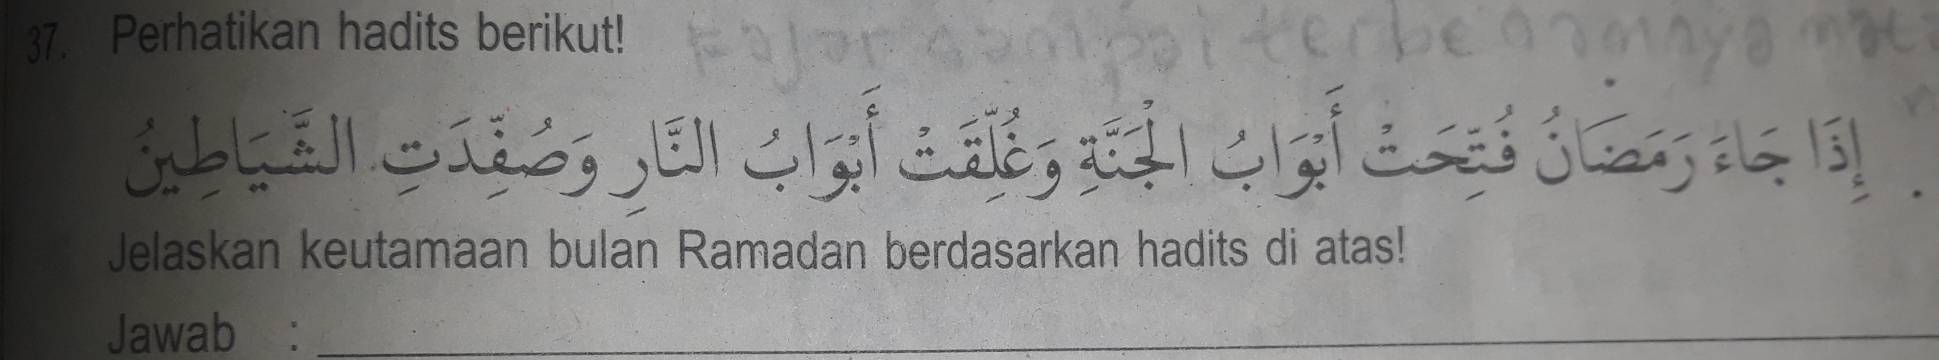 37. Perhatikan hadits berikut!
إِذَا جَاءَ رَمَضَانُ فُتِحَتْ أَبْوَابُ الْجَنَّةِ وَغُلِّقَتْ أَبْوَابُ النَّارِ وَصُفِّدَتِ الشَّيَاطِينُ .
Jelaskan keutamaan bulan Ramadan berdasarkan hadits di atas!
Jawab :